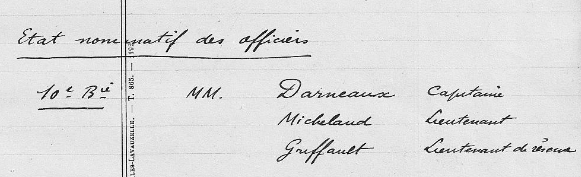 Etat nominatif des officiers
10e Bie MM. Darneaux Capitaine
Micheland Lieutenant
Griffault Lieutenant de réserve
LES-LAVAUZELLE. — T. 865. — 192